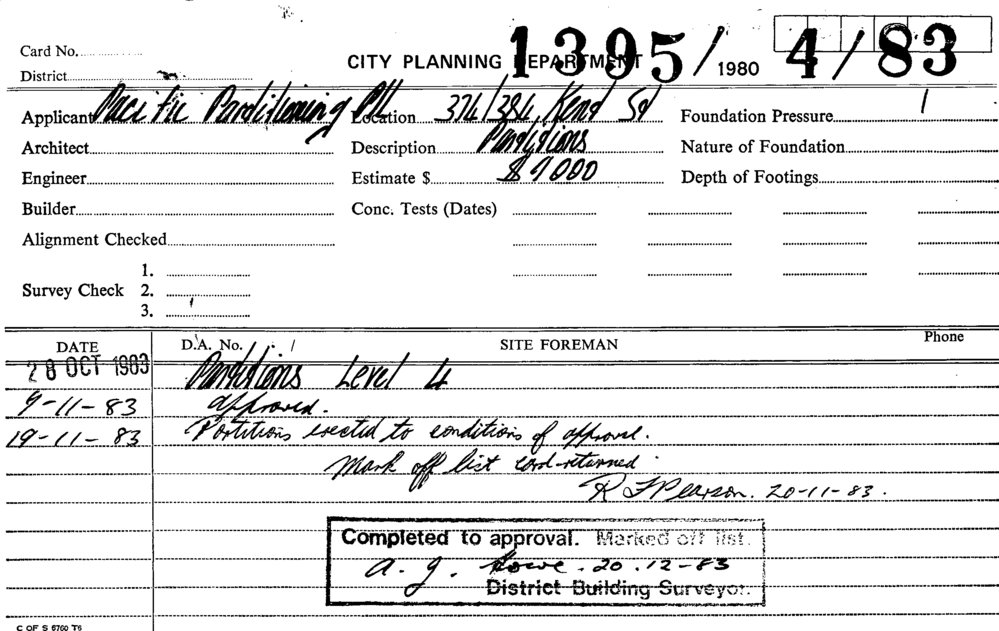 Card No.
CITY PLANNING DEPARTMENT 1395/ 1980 4/83
District
Applicant Pacific Partitioning P/L Location 374/384, Kent St Foundation Pressure
Architect Description Partitions Nature of Foundation
Engineer Estimate $ $9000 Depth of Footings
Builder Conc. Tests (Dates)
Alignment Checked
1.
Survey Check 2.
3.
DATE D.A. No. / SITE FOREMAN Phone
28 OCT 1983 Partitions Level 4
9-11-83 approved.
19-11-83 Partitions erected to conditions of approval.
Mark off list card returned
R F Pearson. 20-11-83.
Completed to approval. Marked off list.
A. J. 20.12-83
District Building Surveyor.
C OF S 6760 T6